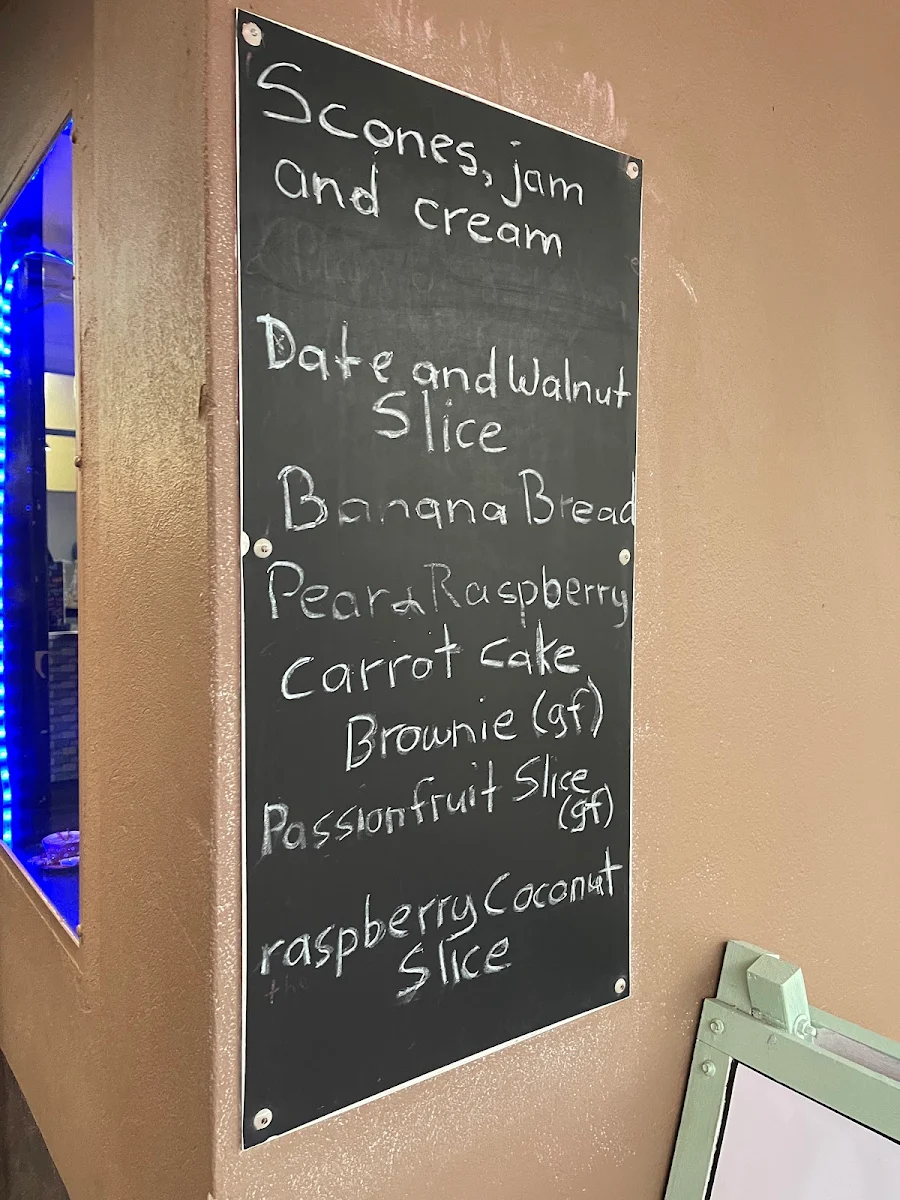 Scones, jam
and cream
Date and Walnut
Slice
Banana Bread
Pear & Raspberry
Carrot Cake
Brownie (gf)
Passionfruit Slice
(gf)
raspberry Coconut
Slice